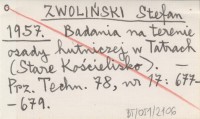 o ZWOLIŃSKI Stefan
1957. Badania na terenie
osady hutniczej w Tatrach
(Stare Kościelisko). —
Prz. Techn. 78, nr 17: 677-
-679.
BT/014/2106